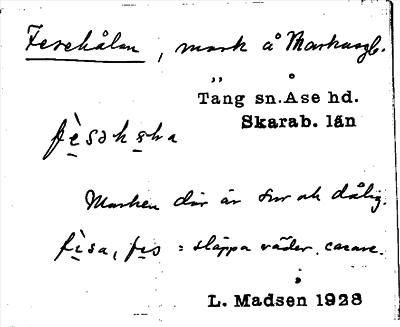 Fesehålan, mark å Markusgb.
Tang sn. Åse hd.
Skarab. län
Marken där är sur och dålig.
fisa, fis = släppa väder.
L. Madsen 1928